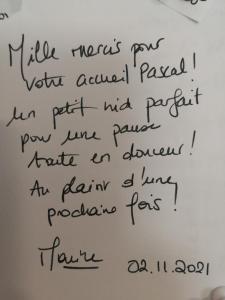 Mille mercis pour
votre accueil Pascal !
Un petit nid parfait
pour une pause
toute en douceur !
Au plaisir d'une
prochaine fois !
02.11.2021